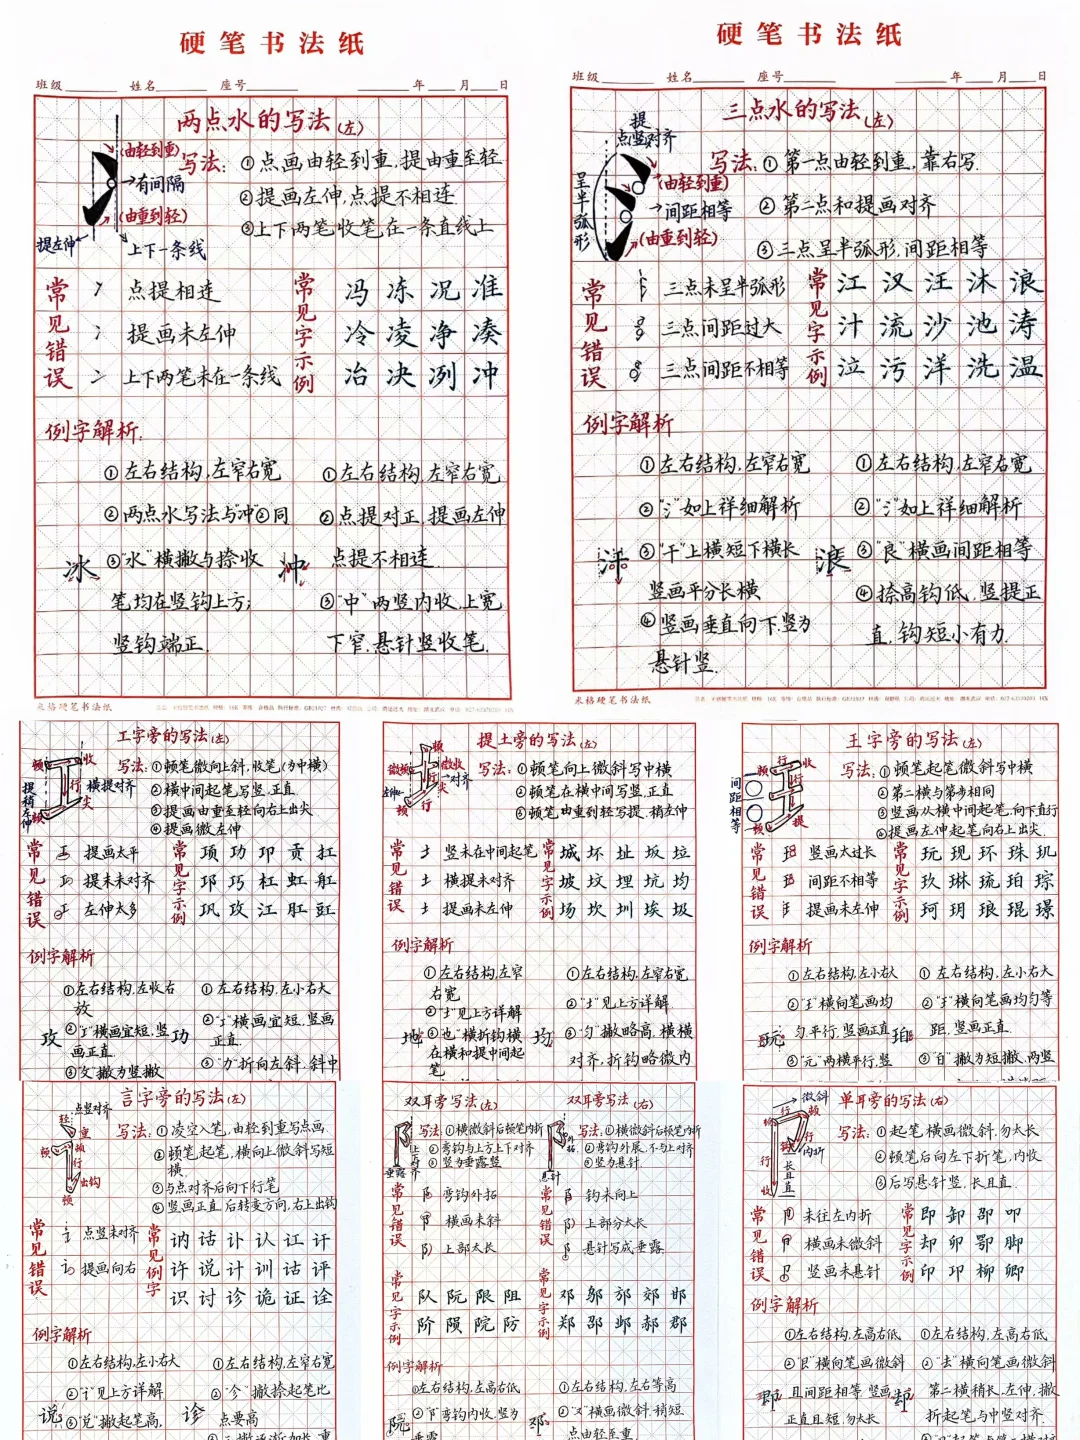 硬笔书法纸
班级 姓名 座号 年 月 日
两点水的写法(左)
(由轻到重)
有间隔
(由重到轻)
提左伸
上下一条线
写法:①点画由轻到重,提由重至轻
②提画左伸,点提不相连
③上下两笔收笔在一条直线上
常见错误
点提相连
提画未左伸
上下两笔未在一条线
常见字示例
冯冻况准
冷凌净凑
冶决冽冲
例字解析:
冰
①左右结构,左窄右宽
②两点水写法与"冲"②同
③"水"横撇与捺收
笔均在竖钩上方;
竖钩端正.
冲
①左右结构,左窄右宽
②点提对正,提画左伸
点提不相连.
③"中"两竖内收,上宽
下窄.悬针竖收笔.
米格硬笔书法纸
硬笔书法纸
班级 姓名 座号 年 月 日
三点水的写法(左)
提点竖对齐
(由轻到重)
间距相等
(由重到轻)
呈半弧形
写法:①第一点由轻到重,靠右写.
②第二点和提画对齐
③三点呈半弧形,间距相等
常见错误
三点未呈半弧形
三点间距过大
三点间距不相等
常见字示例
江汉汪沐浪
汁流沙池涛
泣污洋洗温
例字解析
①左右结构,左窄右宽
②"氵"如上祥细解析
③"干"上横短下横长
竖画平分长横
④竖画垂直向下,竖为
悬针竖.
浪
①左右结构,左窄右宽
②"氵"如上祥细解析
③"良"横画间距相等
④捺高钩低,竖提正
直,钩短小有力.
米格硬笔书法纸
工字旁的写法(左)
顿
收
行
尖
横提对齐
提稍左伸
顿
写法:①顿笔微向上斜,收笔(为中横)
②横中间起笔,写竖,正直.
③提画由重至轻向右上出尖
④提画微左伸
常见错误
提画太平
提未未对齐
左伸太多
常见字示例
项功邛贡扛
邛巧杠虹舡
巩攻江肛豇
例字解析
攻
①左右结构,左收右
放
②"工"横画宜短,竖
画正直.
③"攵"撇为竖撇
功
①左右结构,左小右大
②"工"横画宜短,竖画
正直.
③"力"折向左斜,斜中
提土旁的写法(左)
写法:①顿笔向上微斜写中横
②顿笔在横中间写竖,正直
③顿笔由重到轻写提,稍左伸
常见错误
竖未在中间起笔
横提未对齐
提画未左伸
常见字示例
城坏址坂垃
坡坟埋坑均
场坎圳埃圾
例字解析
地
①左右结构,左窄
右宽
②"土"见上方详解
③"也"横折钩横
在横和提中间起
笔
均
①左右结构,左窄右宽
②"土"见上方详解.
③"匀"撇略高,横横
对齐,折钩略微内
王字旁的写法(左)
间距相等
写法:①顿笔起笔微斜写中横
②第二横与第步相同
③竖画从横中间起笔,向下直行
④提画左伸起笔向右上出尖.
常见错误
竖画太过长
间距不相等
提画未左伸
常见字示例
玩现环珠玑
玖琳琉珀琮
珂玥琅琨璟
例字解析
玩
①左右结构,左小右大
②"王"横向笔画均
匀平行,竖画正直
③"元"两横平行,竖
珀
①左右结构,左小右大
②"王"横向笔画均匀等
距,竖画正直.
③"白"撇为短撇,两竖
言字旁的写法(左)
点竖对齐
轻
重
顿
行
出钩
写法:①凌空入笔,由轻到重写点画
②顿笔起笔,横向上微斜写短
横.
③与点对齐后向下行笔
④竖画正直后转变方向,右上出钩
常见错误
点竖未对齐
提画向右
常见例字
讷诂讣认讧讦
许说计训诂评
识讨诊诡证诠
例字解析
说
①左右结构,左小右大
②"讠"见上方详解
③"兑"撇起笔高,
诊
①左右结构,左窄右宽
②"今"撇捺起笔比
点要高
双耳旁写法(左)
垂露
写法:①横微斜后顿笔内折
②弯钩与上方上下对齐
③竖为垂露竖
常见错误
弯钩外拓
横画未斜
上部太长
常见字示例
队阮限阻
阶陨院防
例字解析
院
①左右结构,左高右低
②"阝"弯钩内收,竖为
垂露
双耳旁写法(右)
悬针
写法:①横微斜后顿笔内折
②弯钩外展,不与上对齐
③竖为悬针.
常见错误
钩未向上
上部分太长
悬针写成垂露
常见字示例
邓邬邡郊邯
郑邵邮郝郡
邓
①左右结构,左右等高
②"又"横画微斜,稍短
点由轻至重.
单耳旁的写法(右)
微斜
行
顿
内折
长且直
收
写法:①起笔,横画微斜,勿太长
②顿笔后向左下折笔,内收
③后写悬针竖,长且直.
常见错误
未往左内折
横画未微斜
竖画未悬针
常见字示例
即卸邵叩
却卯鄂脚
印卬柳卿
例字解析
即
①左右结构,左高右低
②"艮"横向笔画微斜
且间距相等,竖画
正直且短,勿太长
却
①左右结构,左高右低
②"去"横向笔画微斜
第二横稍长,左伸,撇
折起笔与中竖对齐.